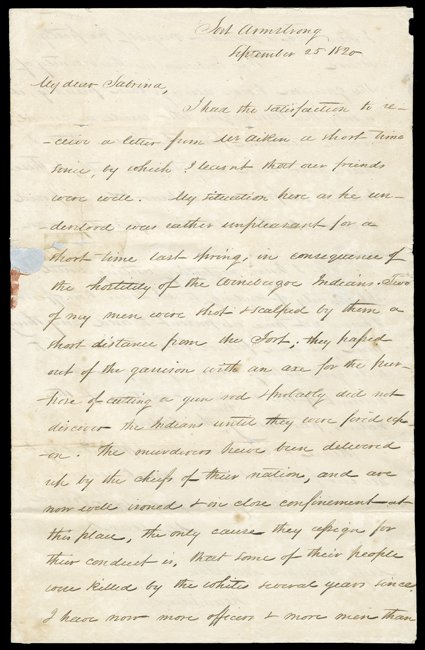 Fort Armstrong
September 25 1820
My dear Sabrina,
I had the satisfaction to re-
-ceive a letter from Mr Aiken a short time
since, by which I learnt that our friends
were well. My situation here as he un-
derstood was rather unpleasant for a
short time last spring, in consequence of
the hostility of the Winebagoe Indians. Two
of my men were shot & scalped by them a
short distance from the Fort; they passed
out of the garrison with an axe for the pur-
-pose of cutting a gun rod & probably did not
discover the Indians until they were fired up-
-on. The murderers have been delivered
up by the chiefs of their nation, and are
now well ironed & in close confinement at
this place, the only cause they assign for
their conduct is, that some of their people
were killed by the whites several years since.
I have now more officers & more men than